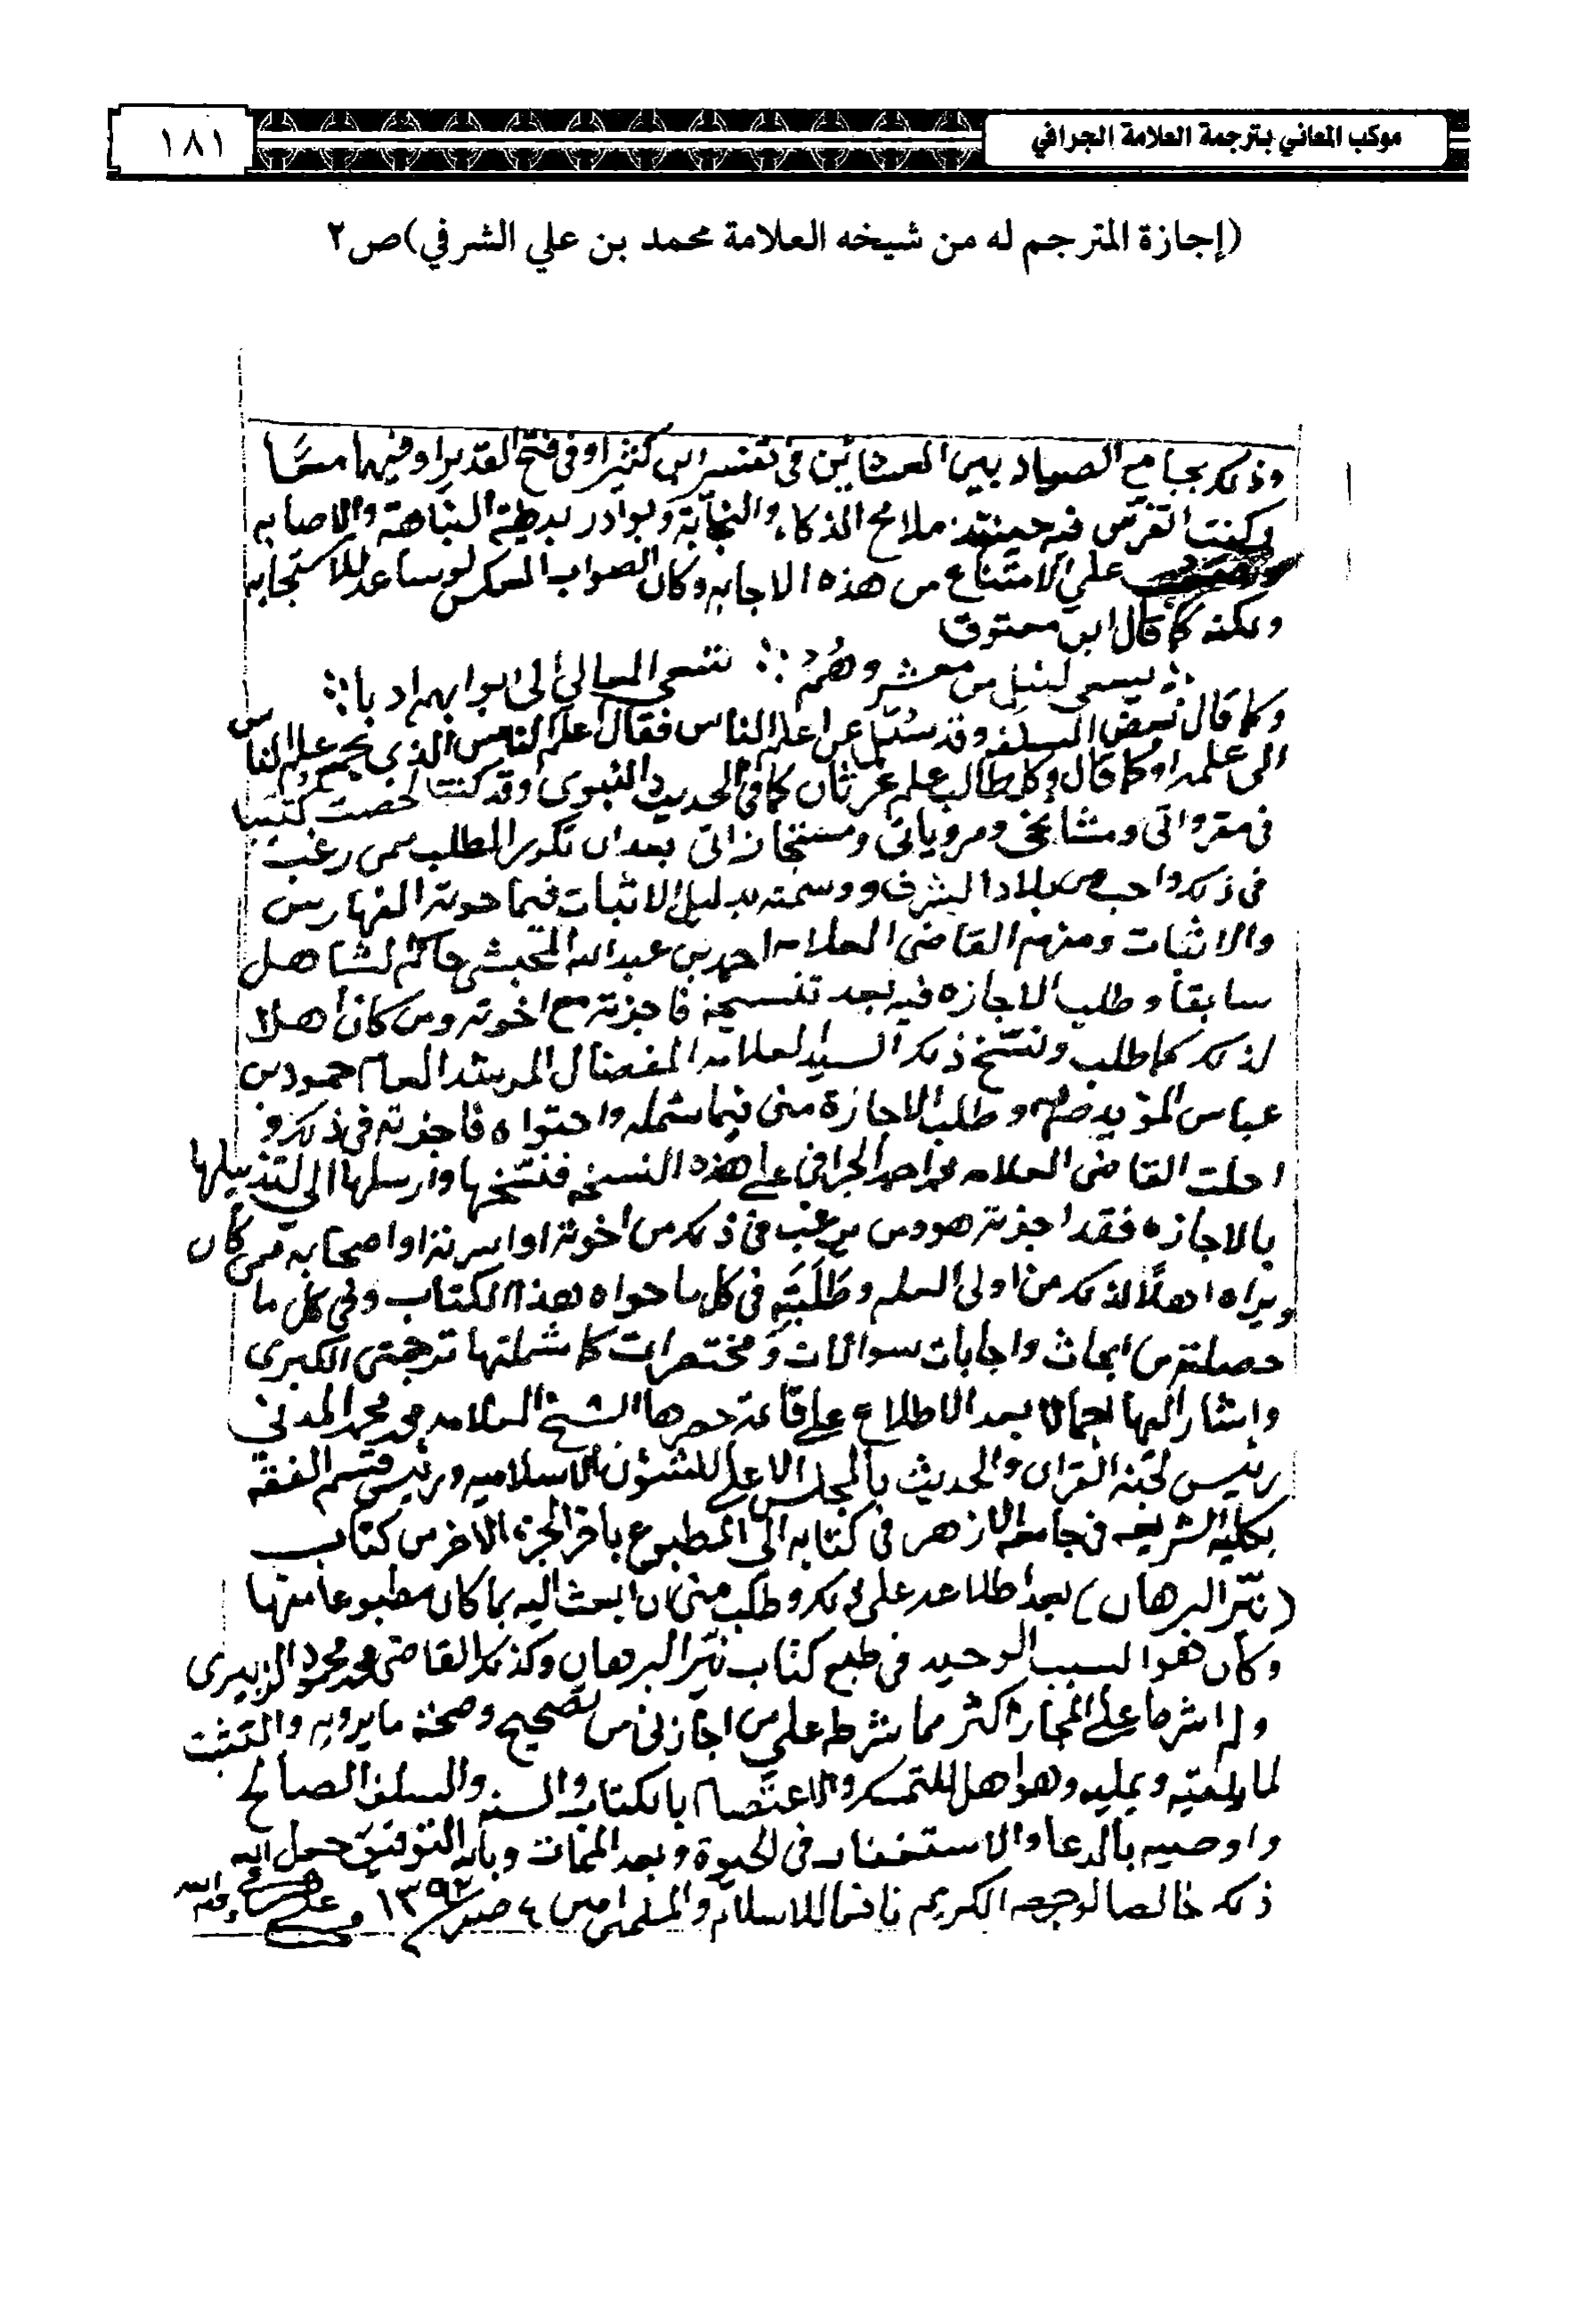 موكب المعاني بترجمة العلامة الجرافي
١٨١
(إجازة المترجم له من شيخه العلامة محمد بن علي الشرفي)ص٢
وذلك بجامع الصياد بين العشائين في تفسير ابن كثير او في فتح القدير او فيهما معًا
وكنت اتفرس فيه حينئذ ملامح الذكاء والنجابة وبوادر النباهة والاصابه
على الامتناع من هذه الاجابه وكان الصواب العكس لو ساعد للاستجابه
ولكنه كما قال ابن معتوق
يسعى لنيل من معشر وهُمُ ∴ تسعى المعالي الى ابوابهم ادبا ∴
وكما قال بعض السلف وقد سُئل عن اعلم الناس فقال اعلم الناس الذي يجمع علم الناس
الى علمه او كما قال وكل طالب علم غرثان كما في الحديث النبوي وقد كنت لخصت كتيبا
في مقرواتي ومشايخي ومروياتي ومستجازاتي بعد ان تكرر الطلب ممن رغب
في ذلك واحب من بلاد الشرف ووسمته بدليل الاثبات فيما حوته الفهارس
والاثبات ومنهم القاضي العلامه احمد بن عبدالله المحبشي حاكم الشاهل
سابقا وطلب الاجازه فيه بعد تنسيخه فاجزته مع اخوته ومن كان أهلا
لذلك كما طلب ونسخ ذلك السيد العلامه المفضال المرشد العام حمود بن
عباس المؤيد وطلب الاجازة منى فيما شمله واحتواه فاجزته في ذلك و
احلت القاضي العلامه محمد احمد الجرافي على هذه النسخه فنسخها وارسلها الي لتذييلها
بالاجازه فقد اجزته هو ومن يرغب في ذلك من اخوته او اسرته او اصحابه ممن كان
ويراه اهلًا لذلك من اولى العلم وطَلَبَتِه في كل ما حواه هذا الكتاب وفي كل ما
حصلته من ابحاث واجابات سوالات ومختصرات كما شملتها ترجمتي الكبرى
واشار اليها اجمالا بعد الاطلاع على قاعة حصرها الشيخ العلامه محمد محمد المدني
رئيس لجنة القران والحديث بالمجلس الاعلى للشؤن الاسلاميه ورئيس قسم الفقه
بكلية الشريعه في جامعة الازهر في كتابه الى المطبوع باخر الجزء الاخر من كتاب
(نثر البرهان) بعد اطلاعه على ذلك وطلب منى ان ابعث اليه بما كان مطبوعا منها
وكان هو السبب الوحيد في طبع كتاب نثر البرهان وكذلك القاضي محمد محمود الزبيري
ولم اشرط على المجاز اكثر مما شرط علي من اجازنى من تصحيح وصحة ما يرويه والتثبت
لما يلقيه ويمليه وهو اهل للتمسك والاعتصام بالكتاب والسنه والسلف الصالح
واوصيه بالدعا والاستغفار في الحيوة وبعد الممات وبالله التوفيق جعل الله
ذلك خالصا لوجهه الكريم نافعا للاسلام والمسلمين امين ٤ صفر ١٣٩٢